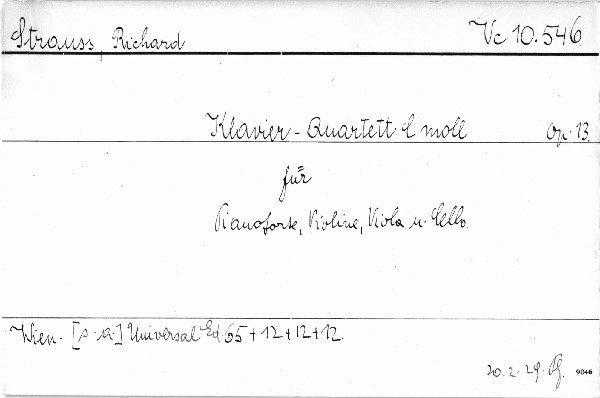 Strauss, Richard Vc 10.546
Klavier-Quartett C moll Op. 13.
für
Pianoforte, Violine, Viola u. Cello.
Wien. [s. a.] Universal Ed. 65 + 12 + 12 + 12.
20. 2. 29. 9046